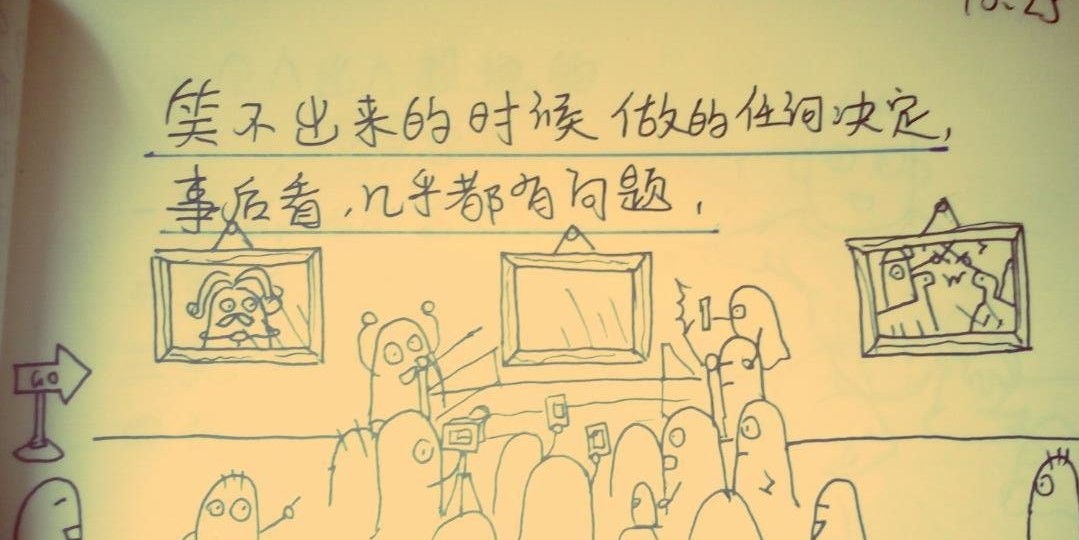 10.25
笑不出来的时候 做的任何决定，
事后看，几乎都有问题，
GO